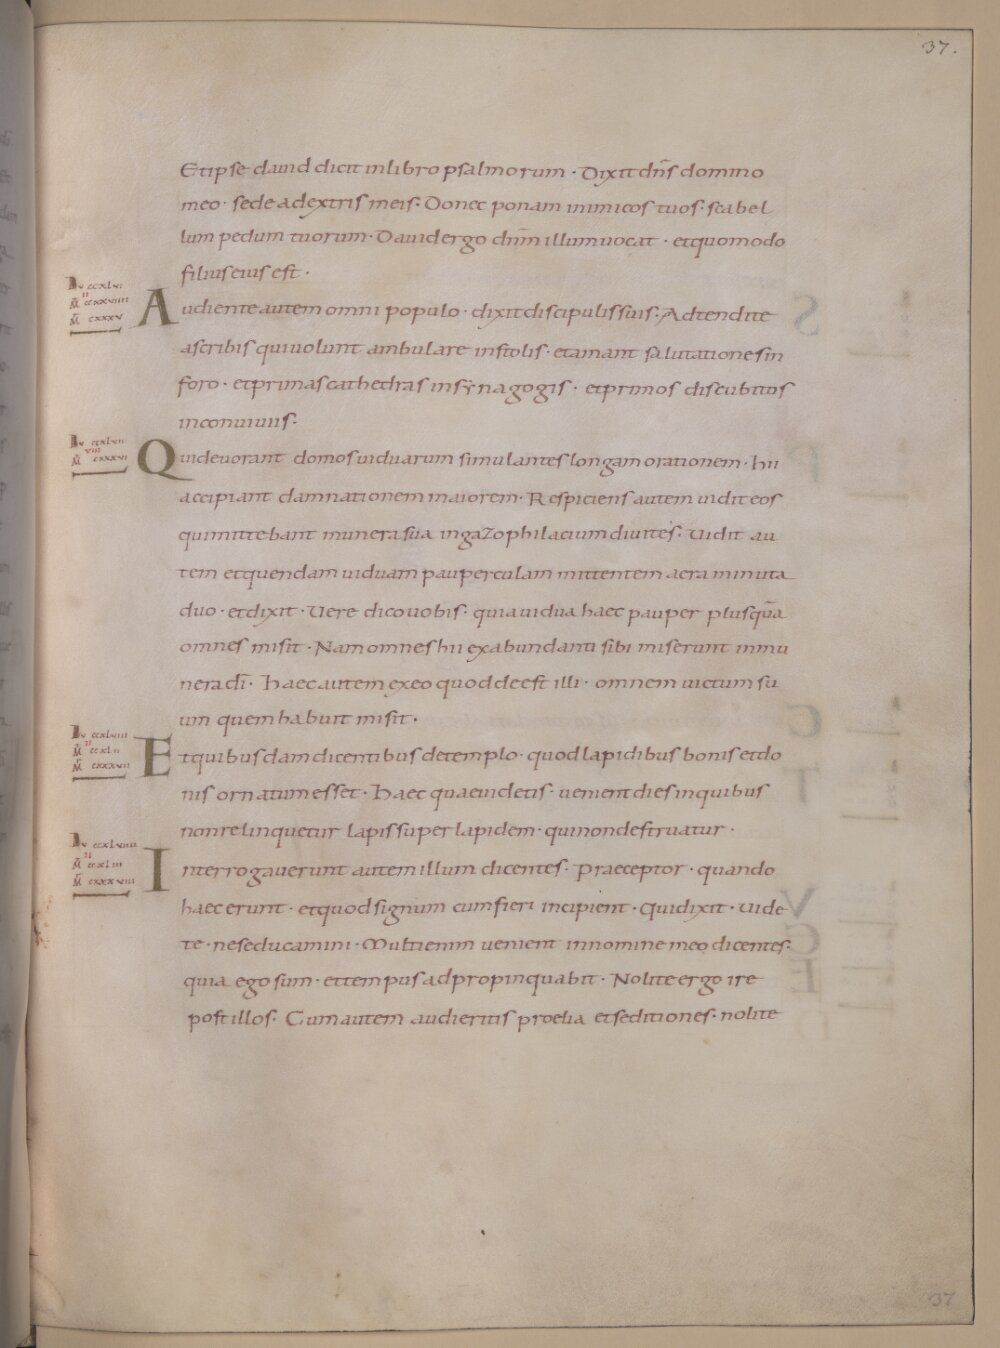 37.
Et ipse dauid dicit in libro psalmorum · Dixit dn̄s domino
meo · sede adextris meis · Donec ponam inimicos tuos · scabel
lum pedum tuorum · Dauid ergo dnm̄ illum uocat · et quomodo
filius eius est ·
Audiente autem omni populo · dixit discipulis suis · Adtendite
ascribis qui uolunt ambulare instolis · et amant salutationes in
foro · et primas cathedras in synagogis · et primos discubitus
in conuiuiis ·
Qui deuorant domos uiduarum simulantes longam orationem · hii
accipiant damnationem maiorem · Respiciens autem uidit eos
qui mittebant munera sua in gazophilacium diuites · Uidit au
tem et quendam uiduam pauperculam mittentem aera minuta
duo · et dixit · Uere dico uobis · quia uidua haec pauper plus quā
omnes misit · Nam omnes hii ex abundanti sibi miserunt in mu
nera dī · Haec autem ex eo quod deest illi · omnem uictum su
um quem habuit misit ·
Et quibusdam dicentibus de templo · quod lapidibus bonis et do
nis ornatum esset · Haec quae uidetis · uenient dies in quibus
non relinquetur lapis super lapidem · qui non destruatur ·
Interrogauerunt autem illum dicentes · Praeceptor · quando
haec erunt · et quod signum cum fieri incipient · Qui dixit · uide
te · ne seducamini · Multi enim uenient in nomine meo dicentes ·
quia ego sum · et tempus adpropinquabit · Nolite ergo ire
post illos · Cum autem audieritis proelia et seditiones · nolite
37